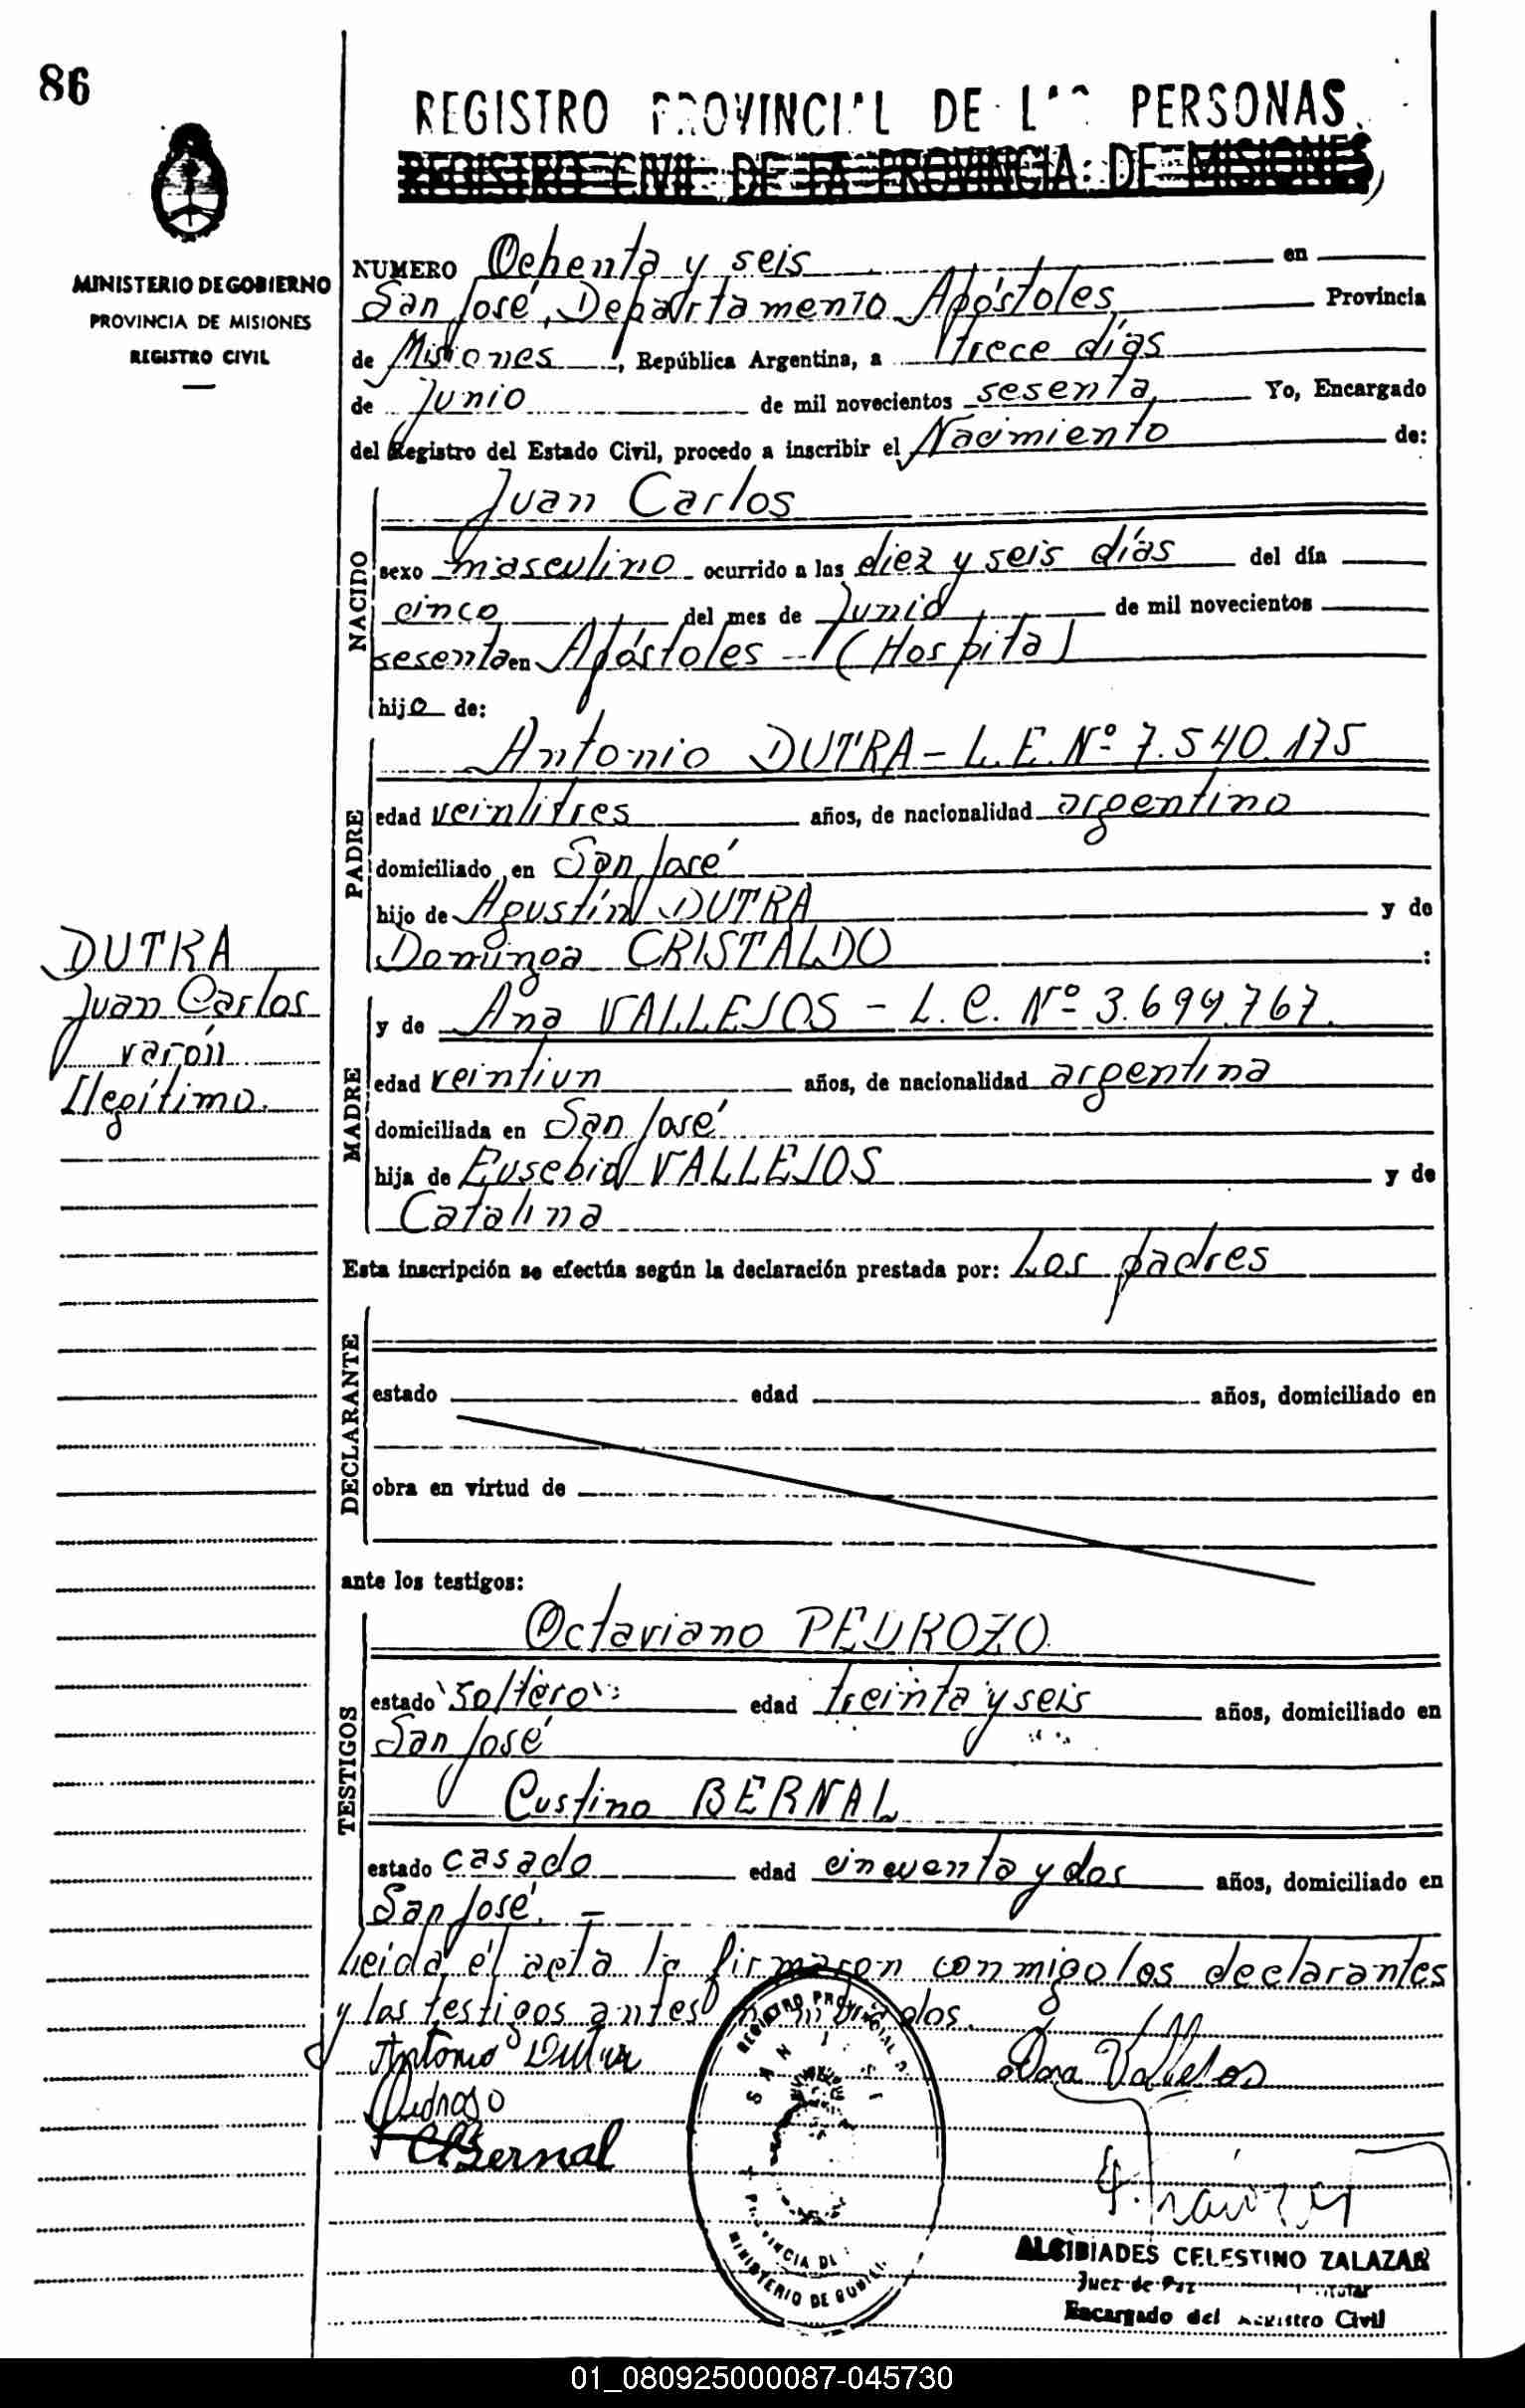 86
REGISTRO PROVINCIAL DE LAS PERSONAS
REGISTRO CIVIL DE LA PROVINCIA DE MISIONES
MINISTERIO DE GOBIERNO
PROVINCIA DE MISIONES
REGISTRO CIVIL
NUMERO Ochenta y seis en
San José, Departamento Apóstoles Provincia
de Misiones, República Argentina, a trece días
de Junio de mil novecientos sesenta, Yo, Encargado
del Registro del Estado Civil, procedo a inscribir el Nacimiento de:
NACIDO
Juan Carlos
sexo masculino ocurrido a las diez y seis días del día
cinco del mes de Junio de mil novecientos
sesenta en Apóstoles - (Hospital)
hijo de:
PADRE
Antonio DUTRA - L.E. Nº 7.540.175
edad veintitres años, de nacionalidad argentino
domiciliado en San José
hijo de Agustín DUTRA y de
Dominga CRISTALDO :
DUTRA
Juan Carlos
varón
Ilegítimo.
MADRE
y de Ana VALLEJOS - L.C. Nº 3.699.767.
edad veintiun años, de nacionalidad argentina
domiciliada en San José
hija de Eusebio VALLEJOS y de
Catalina
Esta inscripción se efectúa según la declaración prestada por: Los padres
DECLARANTE
estado edad años, domiciliado en
obra en virtud de
ante los testigos:
TESTIGOS
Octaviano PEDROZO
estado soltero edad treinta y seis años, domiciliado en
San José
Custino BERNAL
estado casado edad cincuenta y dos años, domiciliado en
San José. -
Leida el acta la firmaron conmigo los declarantes
y los testigos antes nombrados.
Antonio Dutra
Ana Vallejos
Pedroso
CBernal
REGISTRO PROVINCIAL D
SAN J
PROVINCIA DE
MINISTERIO DE GOBIE
ALCIBIADES CELESTINO ZALAZAR
Juez de Paz Titular
Encargado del Registro Civil
01_080925000087-045730